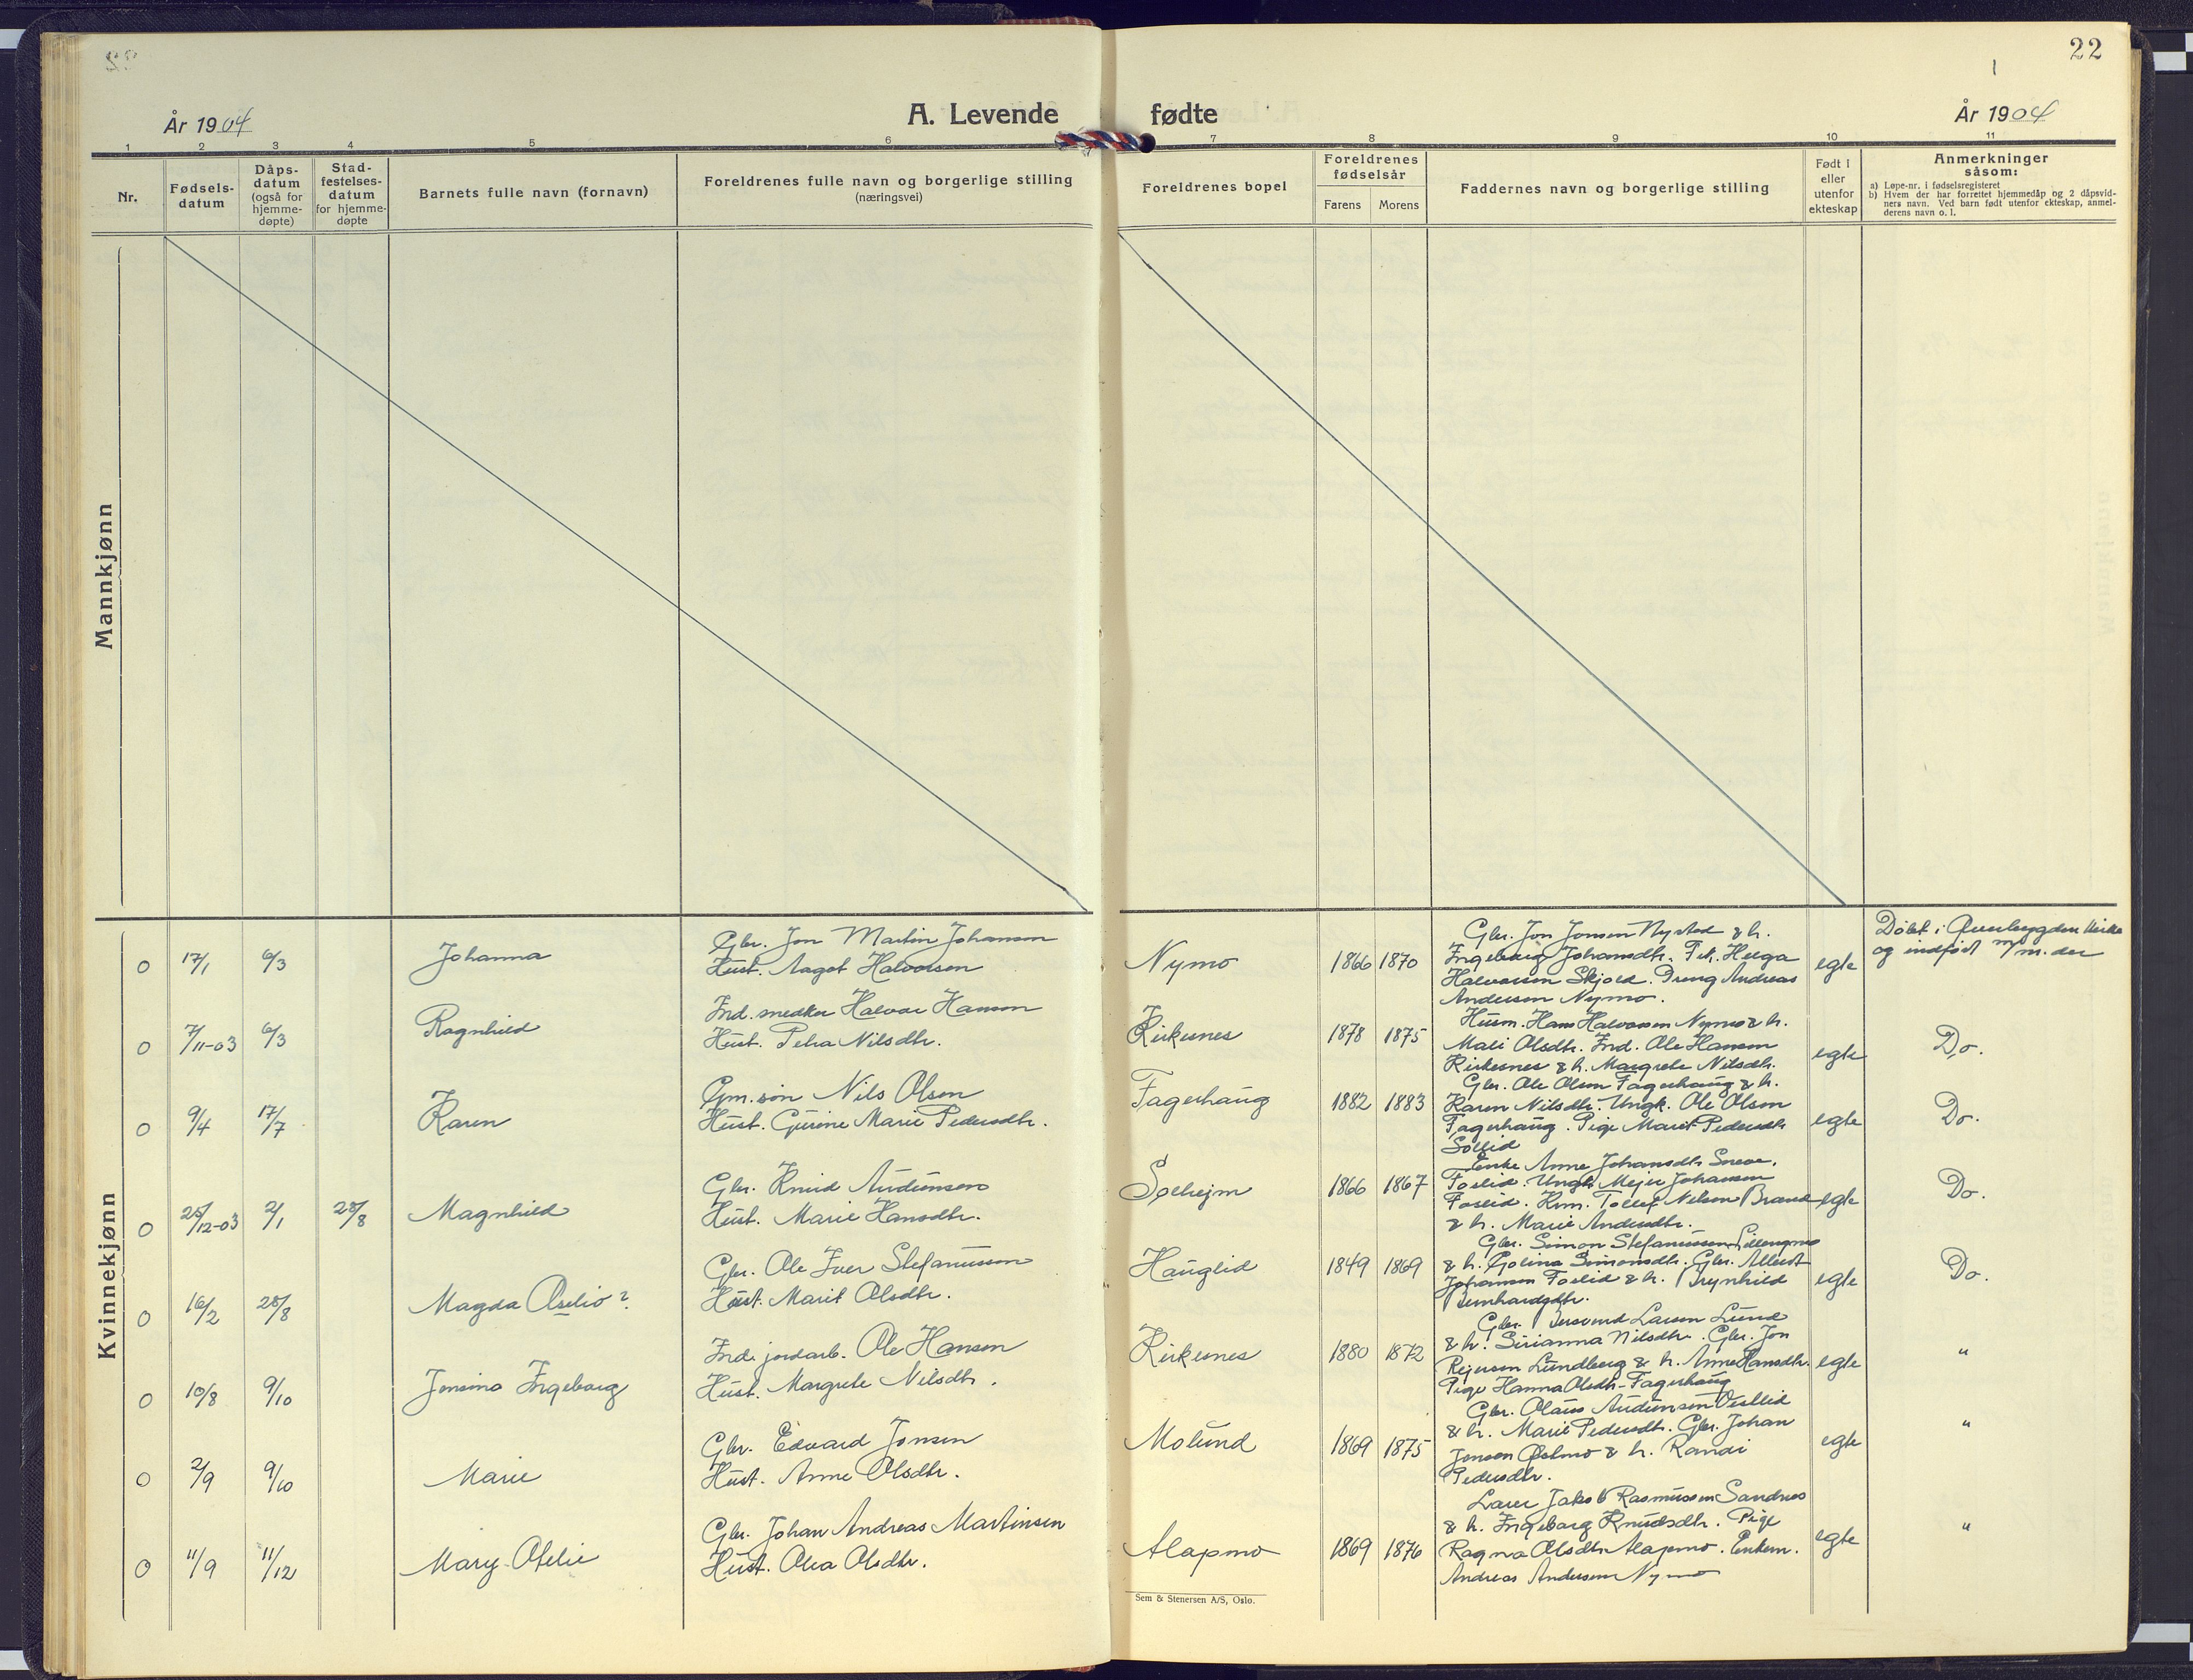 22
År 1904
A. Levende fødte
År 1904
1 2 3 4 5 6 7 8 9 10 11
Nr.
Fødsels-
datum
Dåps-
datum
(også for
hjemme-
døpte)
Stad-
festelses-
datum
for hjemme-
døpte
Barnets fulle navn (fornavn)
Foreldrenes fulle navn og borgerlige stilling
(næringsvei)
Foreldrenes bopel
Foreldrenes
fødselsår
Farens Morens
Faddernes navn og borgerlige stilling
Født i
eller
utenfor
ekteskap
Anmerkninger
såsom:
a) Løpe-nr. i fødselsregisteret
b) Hvem der har forrettet hjemmedåp og 2 dåpsvid-
ners navn. Ved barn født utenfor ekteskap, anmel-
derens navn o. l.
Mannkjønn
Kvinnekjønn
0 17/1 6/3 Johanna
Gbr. Jon Martin Johansen
Hust. Aagot Halvorsen
Nymo 1866 1870
Gbr. Jon Jonsen Nysted & h.
Ingeborg Johansdtr. Frk. Helga
Halvorsen Skjold. Dreng Andreas
Andersen Nymo.
egte
og indført
0 7/11-03 6/3 Ragnhild
Ind. snedker Halvor Hansen
Hust. Petra Nilsdtr.
Kirkesnes 1878 1875
Husm. Hans Halvorsen Nymo & h.
Mali Olsdtr. Ind. Ole Hansen
Kirkesnes & h. Margrete Nilsdtr.
egte Do.
0 9/4 17/7 Karen
Gm. søn Nils Olsen
Hust. Gurine Marie Pedersdtr.
Fagerhaug 1882 1883
Gbr. Ole Olsen Fagerhaug & h.
Karen Nilsdtr. Ungk. Ole Olsen
Fagerhaug. Pige Marit Pedersdtr
Sollid
egte Do.
0 25/12-03 2/1 28/8 Magnhild
Gbr. Knud Audunsen
Hust. Marie Hansdtr.
Solhejm 1866 1867
Enke Anne Johansdtr
Foslid. Ungk. Mejer Johansen
Foslid. Hm. Tollef Nelson Brand
& h. Marie Andersdtr.
egte Do.
0 16/2 28/8 Magda Oselio?
Gbr. Ole Iver Stefanussen
Hust. Marit Olsdtr.
Hauglid 1849 1869
Gbr. Simon Stefanussen Lillengmo
& h. Golina Simonsdtr. Gbr. Albert
Johansen Foslid & h. Brynhild
Bernhardsdtr.
egte Do.
0 10/8 9/10 Jensine Ingeborg
Ind. jordarb. Ole Hansen
Hust. Margrete Nilsdtr.
Kirkesnes 1880 1872
Gbr. Larsen Lund
& h. Sirianna Nilsdtr. Gbr. Jon
Rejersen Lundberg & h. Anne Hansdtr.
Pige Hanna Olsdtr Fagerhaug
egte "
0 2/9 9/10 Marie
Gbr. Edvard Jonsen
Hust. Anne Olsdtr.
Molund 1869 1875
Gbr. Olaus Audunsen Vestlid
& h. Marie Pedersdtr. Gbr. Johan
Jonsen Østmo & h. Randi
Pedersdtr.
egte "
0 11/9 11/12 Mary Ofelie
Gbr. Johan Andreas Martinsen
Hust. Olea Olsdtr.
Alapmo 1869 1876
Lærer Jakob Rasmussen Sandnes
& h. Ingeborg Knudsdtr. Pige
Ragna Olsdtr Alapmo. Enkem.
Andreas Andersen Nymo
egte "
Sem & Stenersen A/S, Oslo.